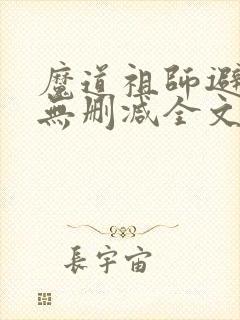 魔道祖師避
無删减全文
長宇宙